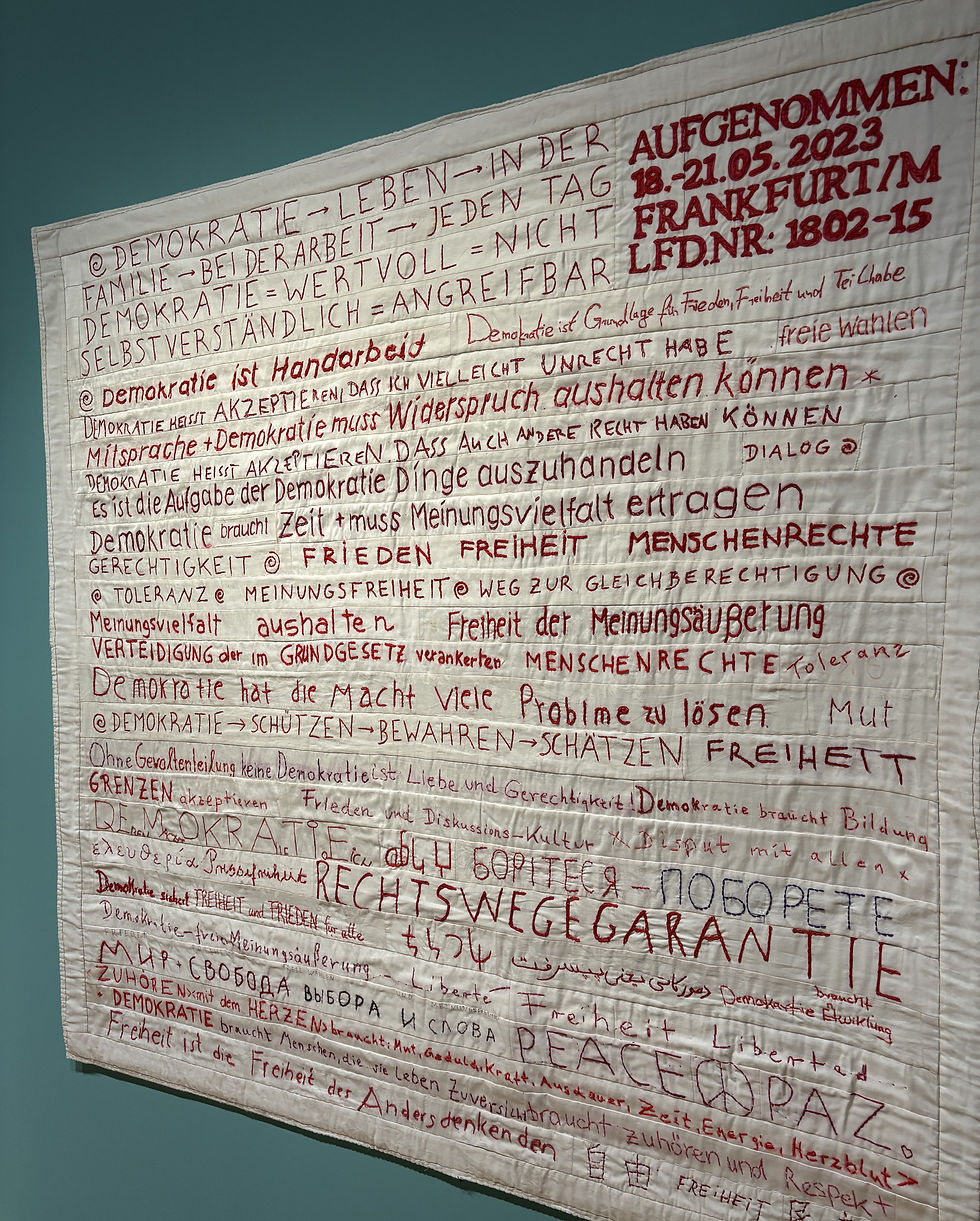 @ DEMOKRATIE → LEBEN → IN DER
FAMILIE → BEI DER ARBEIT → JEDEN TAG
DEMOKRATIE = WERTVOLL = NICHT
SELBSTVERSTÄNDLICH = ANGREIFBAR
AUFGENOMMEN:
18.-21.05.2023
FRANKFURT/M
LFD.NR: 1802-15
Demokratie ist Grundlage für Frieden, Freiheit und Teilhabe
@ Demokratie ist Handarbeit
freie Wahlen
DEMOKRATIE HEISST AKZEPTIEREN, DASS ICH VIELLEICHT UNRECHT HABE
Mitsprache + Demokratie muss Widerspruch aushalten können *
DEMOKRATIE HEISST AKZEPTIEREN DASS AUCH ANDERE RECHT HABEN KÖNNEN
Es ist die Aufgabe der Demokratie Dinge auszuhandeln DIALOG @
Demokratie braucht Zeit + muss Meinungsvielfalt ertragen
GERECHTIGKEIT @ FRIEDEN FREIHEIT MENSCHENRECHTE
@ TOLERANZ @ MEINUNGSFREIHEIT @ WEG ZUR GLEICHBERECHTIGUNG @
Meinungsvielfalt aushalten Freiheit der Meinungsäußerung
VERTEIDIGUNG der im GRUNDGESETZ verankerten MENSCHENRECHTE Toleranz
Demokratie hat die Macht viele Problme zu lösen Mut
@ DEMOKRATIE → SCHÜTZEN → BEWAHREN → SCHÄTZEN FREIHEIT
Ohne Gewaltenteilung keine Demokratie ist Liebe und Gerechtigkeit! Demokratie braucht Bildung
GRENZEN akzeptieren Frieden und Diskussions-Kultur x Disput mit allen x
DEMOKRATIE БОРІТЕСЯ – ПОБОРЕТЕ
ελευθερία Pressefreiheit RECHTSWEGEGARANTIE
Demokratie sichert FREIHEIT und FRIEDEN für alle
Demokratie - freie Meinungsäußerung - Liberté Demokratie braucht Entwicklung
Freiheit Libertad...
МИР + СВОБОДА ВЫБОРА И СЛОВА
PEACE PAZ.
ZUHÖREN > mit dem HERZEN > braucht: Mut, Geduld, Kraft, Ausdauer, Zeit, Energie, Herzblut >
• DEMOKRATIE braucht Menschen, die sie leben Zuversicht braucht zuhören und Respekt
Freiheit ist die Freiheit des Andersdenkenden FREIHEIT